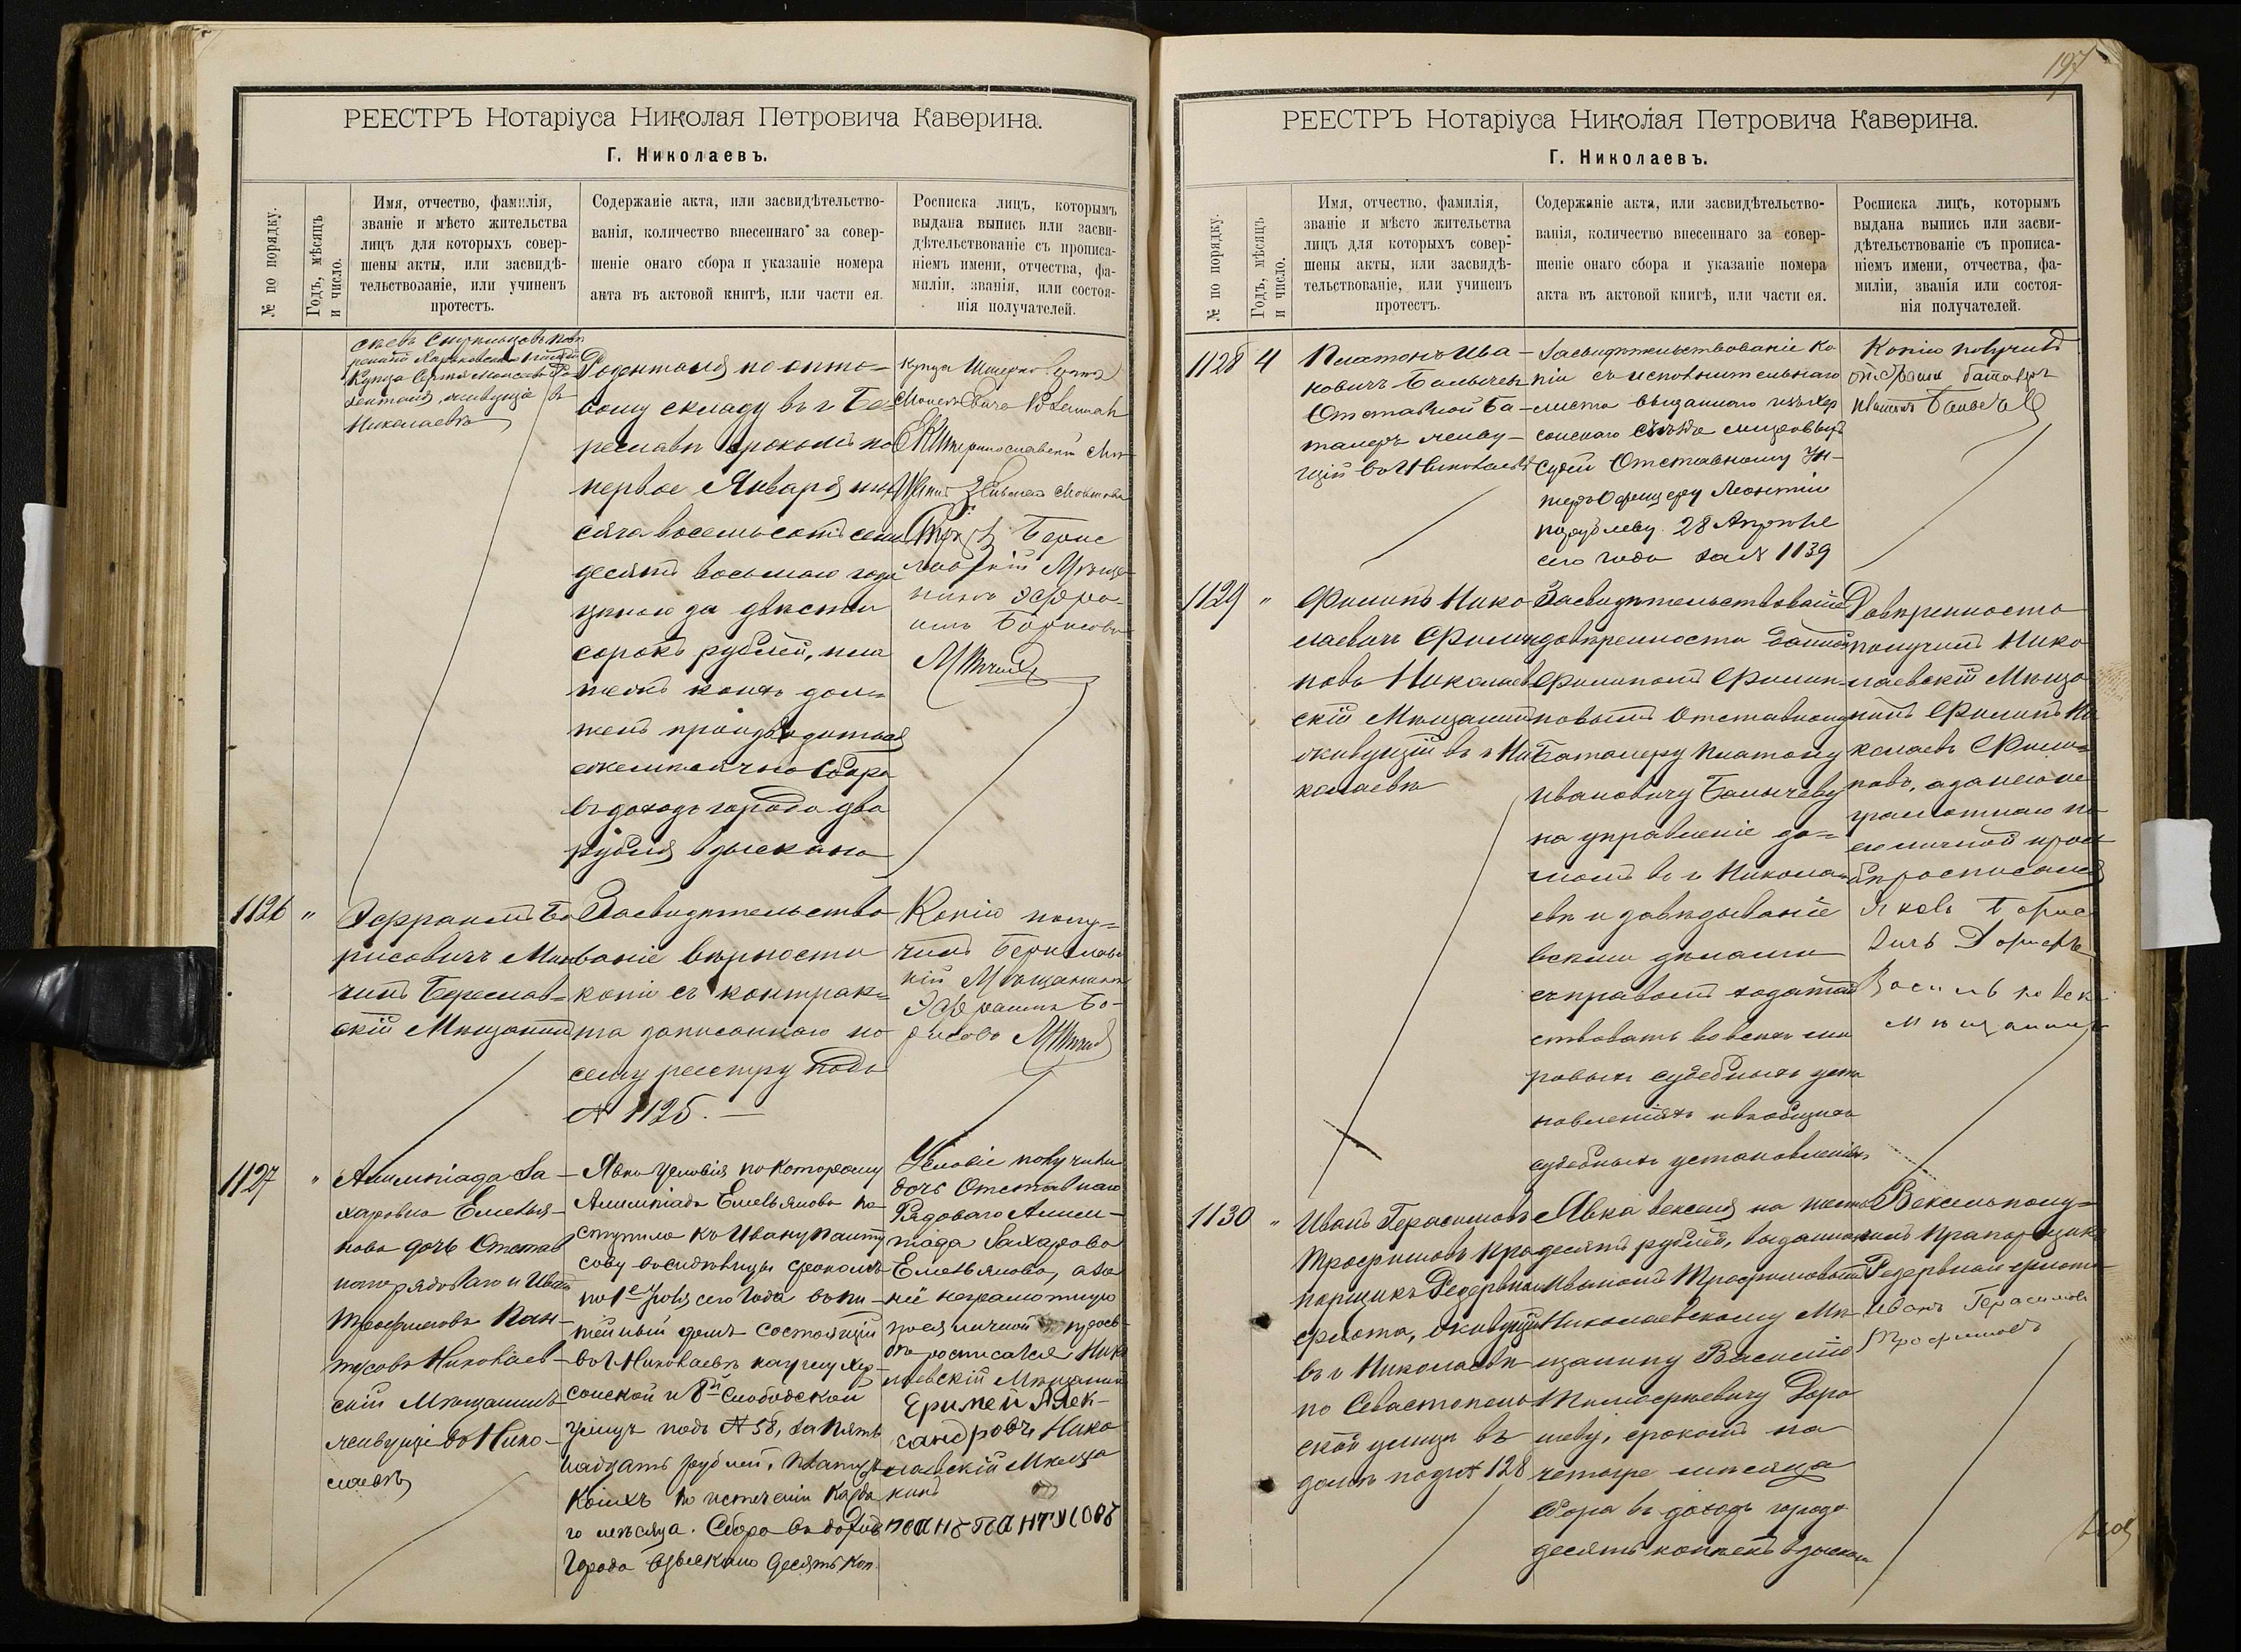 РЕЕСТРЪ Нотаріуса Николая Петровича Каверина.
Г. Николаевъ.
№ по порядку.
Годъ, мѣсяцъ
и число.
Имя, отчество, фамилія,
званіе и мѣсто жительства
лицъ для которыхъ совер-
шены акты, или засвидѣ-
тельствованіе, или учиненъ
протестъ.
Содержаніе акта, или засвидѣтельство-
ванія, количество внесеннаго за совер-
шеніе онаго сбора и указаніе номера
акта въ актовой книгѣ, или части ея.
Росписка лицъ, которымъ
выдана выпись или засви-
дѣтельствованіе съ прописа-
ніемъ имени, отчества, фа-
миліи, званія, или состоя-
нія получателей.
Купца
живущіе въ
Николаевѣ
вому складу въ г. Бе-
реславѣ срокомъ по
первое Января ты-
сяча восемьсотъ семь
десятъ восьмого года
цѣною за двѣсти
сорокъ рублей, пла
тежъ коихъ дол-
женъ производиться
ежемѣсячно Сбора
въ доходъ города два
рубля взыскано
Купца
Берис
лавскій Мѣща-
нинъ Эфро-
имъ Борисовъ
1126 "
Эфраимъ Бо
рисовичъ
Береслав-
скій Мѣщанинъ
Засвидѣтельство
ваніе вѣрности
копіи съ контрак-
та записаннаго по
сему реестру подъ
№ 1125. —
Копію полу-
чилъ Бериславс
кій Мѣщанинъ
Эфраимъ Бо-
рисовъ
1127 "
Алимпіада За-
харовна Емелья-
нова дочь Отстав
наго рядоваго и Иванъ
Трофимовъ Пан-
тусовъ Николаев-
скій Мѣщанинъ
живущіе въ Нико-
лаевѣ
Явка условія по которому
Алимпіада Емельянова по
ступила къ Ивану Панту
сову въ сидѣлицы срокомъ
по 1е сего года въ пи-
тейный домъ состоящій
въ г. Николаевѣ на углу Хер-
сонской и 8й Слободской
улицъ подъ № 58, за пять
надцать рублей, платежъ
коихъ по истеченіи каждо
го мѣсяца. Сбора въ доходъ
города взыскано десять коп.
Условіе получила
дочь Отставнаго
Рядоваго Алим-
піада Захарова
Емельянова, а за
неё неграмотную
по ея личной прось-
бѣ росписался Нико
лаевскій Мѣщанинъ
Еримей Алек-
сандровъ Нико
лаевскій Мѣща
нинъ
РЕЕСТРЪ Нотаріуса Николая Петровича Каверина.
Г. Николаевъ.
197
№ по порядку.
Годъ, мѣсяцъ
и число.
Имя, отчество, фамилія,
званіе и мѣсто жительства
лицъ для которыхъ совер-
шены акты, или засвидѣ-
тельствованіе, или учиненъ
протестъ.
Содержаніе акта, или засвидѣтельство-
ванія, количество внесеннаго за совер-
шеніе онаго сбора и указаніе номера
акта въ актовой книгѣ, или части ея.
Росписка лицъ, которымъ
выдана выпись или засви-
дѣтельствованіе съ прописа-
ніемъ имени, отчества, фа-
миліи, званія или состоя-
нія получателей.
1128 4
Платонъ Ива-
новичъ Балычевъ
Отставной Ба-
талеръ живу-
щій въ г. Николаевѣ
Засвидѣтельствованіе ко
піи съ исполнительнаго
листа выданнаго изъ Хер
сонскаго Съѣзда мировыхъ
Судей Отставному Ун-
теръ Офицеру Леонтію
28 Апрѣля
сего года за № 1139
Копію получилъ
баталеръ
1129 "
Филипъ Нико
лаевичъ Филип
повъ Николаев
скій Мѣщанинъ
живущій въ г. Ни
колаевѣ
Засвидѣтельствованіе
довѣренности данной
Филиппомъ Филип-
повымъ Отставному
Баталеру Платону
Ивановичу Балычеву
на управленіе до-
момъ въ г. Никола
евѣ и завѣдываніе
всѣми дѣлами
съ правомъ ходатай
ствовать во всѣхъ ми
ровыхъ судебныхъ уста
новленіяхъ и въ общихъ
судебныхъ установленіяхъ
Довѣренность
получилъ Нико
лаевскій Мѣща
нинъ Филипъ Ни
колаевъ Филип-
повъ, а за него не
грамотнаго по
его личной прось
бѣ росписался
Яковъ Борис
мѣщанинъ
1130 "
Иванъ Герасимовъ
Трофимовъ Пра
порщикъ Резервнаго
флота, живущій
въ г. Николаевѣ
по Севастополь
ской улицѣ въ
домѣ подъ № 128
Явка векселя на шесть
десятъ рублей, выданнаго
Иваномъ Трофимовымъ
Николаевскому Мѣ-
щанину Василію
Тимофѣевичу Доро
шеву, срокомъ на
четыре мѣсяца
Сбора въ доходъ города
десять копѣекъ взыскано
Вексель полу-
чилъ Прапорщикъ
Резервнаго флота
Иванъ Герасимовъ
Трофимовъ